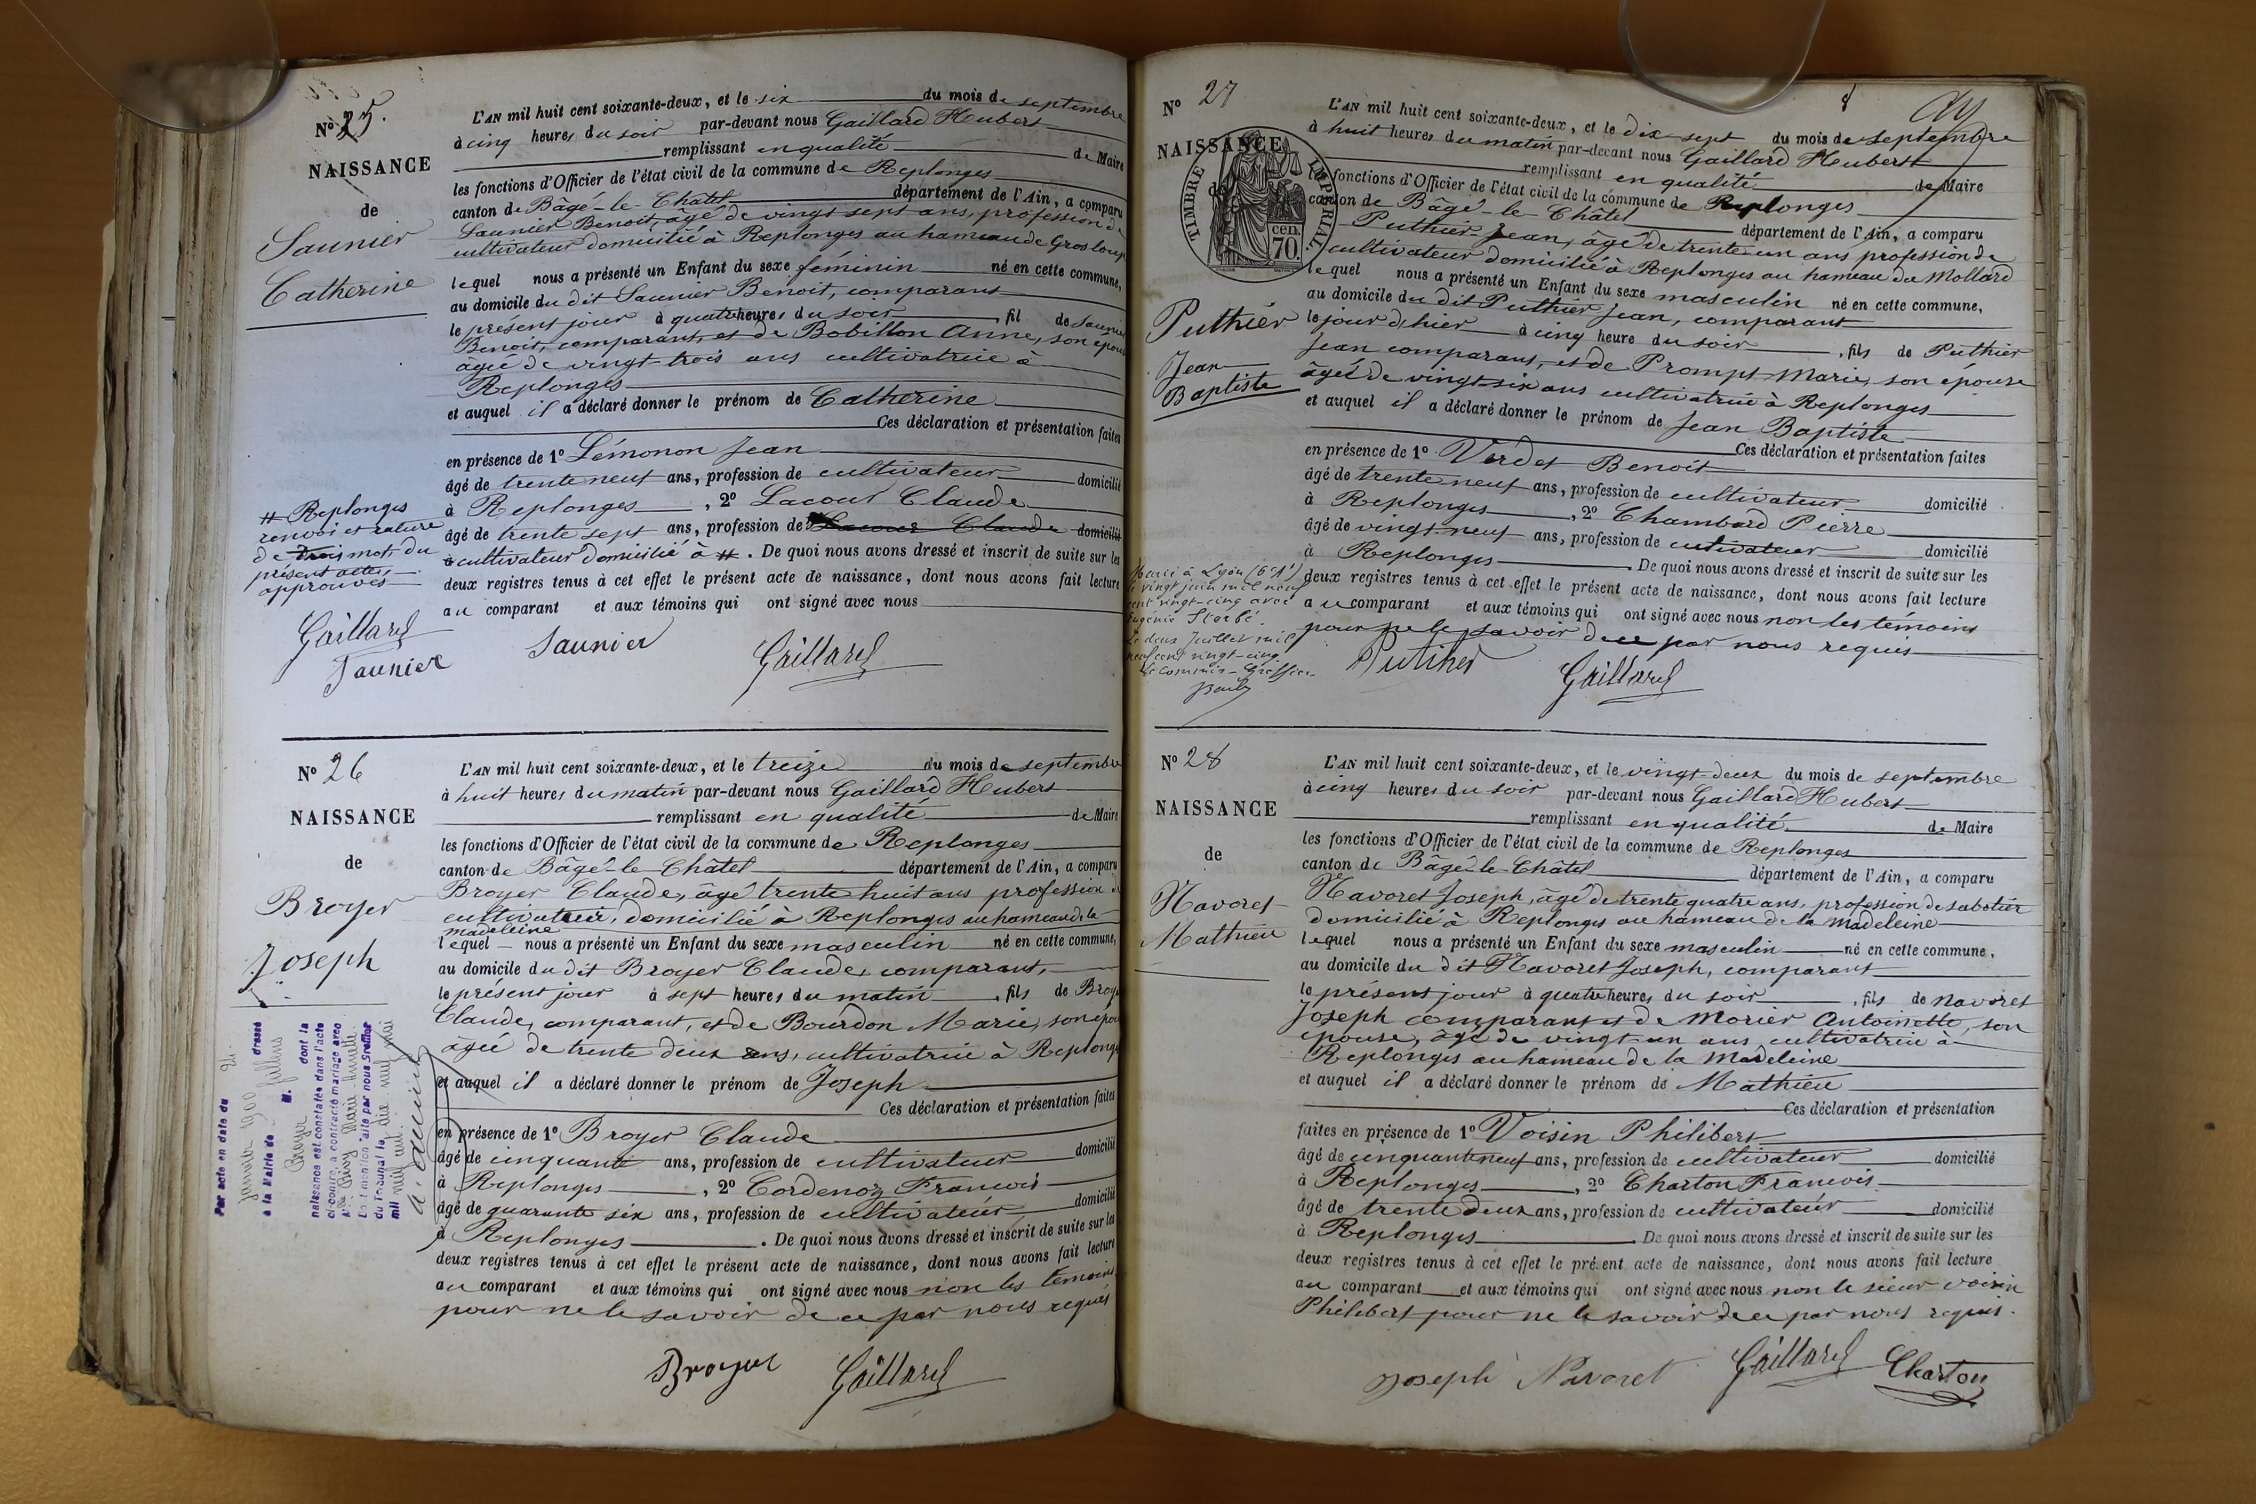 N° 25.
NAISSANCE
de
Saunier
Catherine
L'AN mil huit cent soixante-deux, et le six du mois de septembre
à cinq heures du soir par-devant nous Gaillard Hubert
remplissant en qualité de Maire
les fonctions d'Officier de l'état civil de la commune de Replonges
canton de Bâgé-le-Châtel département de l'Ain, a comparu
Saunier Benoit, âgé de vingt sept ans, profession de
cultivateur domicilié à Replonges au hameau de Grosloup
lequel nous a présenté un Enfant du sexe féminin né en cette commune,
au domicile du dit Saunier Benoit, comparant
le présent jour à quatre heures du soir, fil de Saunier
Benoit, comparant, et de Bobillon Anne, son épouse
âgée de vingt trois ans cultivatrice à
Replonges
et auquel il a déclaré donner le prénom de Catherine
Ces déclaration et présentation faites
en présence de 1° Lémonon Jean
âgé de trente neuf ans, profession de cultivateur domicilié
à Replonges, 2° Lacour Claude
âgé de trente sept ans, profession de Lacour Claude domicilié
à cultivateur domicilié à #. De quoi nous avons dressé et inscrit de suite sur les
deux registres tenus à cet effet le présent acte de naissance, dont nous avons fait lecture
au comparant et aux témoins qui ont signé avec nous
# Replonges
renvoi et rature
de trois mots du
présent acte,
approuvés
Gaillard
Saunier
Saunier Gaillard
N° 26
NAISSANCE
de
Broyer
Joseph
L'AN mil huit cent soixante-deux, et le treize du mois de septembre
à huit heures du matin par-devant nous Gaillard Hubert
remplissant en qualité de Maire
les fonctions d'Officier de l'état civil de la commune de Replonges
canton de Bâgé-le-Châtel département de l'Ain, a comparu
Broyer Claude, âgé trente huit ans profession de
cultivateur, domicilié à Replonges au hameau de la
madeleine
lequel nous a présenté un Enfant du sexe masculin né en cette commune,
au domicile du dit Broyer Claude, comparant,
le présent jour à sept heures du matin, fils de Broyer
Claude, comparant, et de Bourdon Marie, son épouse
âgée de trente deux ans, cultivatrice à Replonges
et auquel il a déclaré donner le prénom de Joseph
Ces déclaration et présentation faites
en présence de 1° Broyer Claude
âgé de cinquante ans, profession de cultivateur domicilié
à Replonges, 2° Cordenoz Francois
âgé de quarante six ans, profession de cultivateur domicilié
à Replonges. De quoi nous avons dressé et inscrit de suite sur les
deux registres tenus à cet effet le présent acte de naissance, dont nous avons fait lecture
au comparant et aux témoins qui ont signé avec nous non les temoins
pour ne le savoir de ce par nous requis
Broyer Gaillard
Par acte en date du
janvier 1900 dressé
à la Mairie de
Broyer M. dont la
naissance est constatée dans l'acte
ci-contre, a contracté mariage avec
Marie
La mention faite par nous Greffier
du Tribunal le dix neuf mai
mil neuf cent
N° 27
NAISSANCE
de
TIMBRE IMPÉRIAL.
70. cen.
Puthier
Jean
Baptiste
L'AN mil huit cent soixante-deux, et le dix-sept du mois de septembre
à huit heures du matin par-devant nous Gaillard Hubert
remplissant en qualité de Maire
les fonctions d'Officier de l'état civil de la commune de Replonges
canton de Bâgé-le-Châtel département de l'Ain, a comparu
Puthier Jean, âgé de trente-un ans profession de
cultivateur domicilié à Replonges au hameau du Mollard
lequel nous a présenté un Enfant du sexe masculin né en cette commune,
au domicile du dit Puthier Jean, comparant
le jour d'hier à cinq heure du soir, fils de Puthier
Jean comparant, et de Prompt Marie, son épouse
âgée de vingt-six ans cultivatrice à Replonges
et auquel il a déclaré donner le prénom de Jean Baptiste
Ces déclaration et présentation faites
en présence de 1° Verdet Benoit
âgé de trente neuf ans, profession de cultivateur domicilié
à Replonges, 2° Chambard Pierre
âgé de vingt-neuf ans, profession de cultivateur domicilié
à Replonges. De quoi nous avons dressé et inscrit de suite sur les
deux registres tenus à cet effet le présent acte de naissance, dont nous avons fait lecture
au comparant et aux témoins qui ont signé avec nous non les témoins
pour ne le savoir de ce par nous requis
Marié à Lyon (6e A')
le vingt juin mil neuf
cent vingt-cinq avec
Eugénie Sterbé.
Le deux Juillet mil
neuf cent vingt-cinq
Le commis-Greffier
Puthier Gaillard
N° 28
NAISSANCE
de
Navoret
Mathieu
L'AN mil huit cent soixante-deux, et le vingt-deux du mois de septembre
à cinq heures du soir par-devant nous Gaillard Hubert
remplissant en qualité de Maire
les fonctions d'Officier de l'état civil de la commune de Replonges
canton de Bâgé-le-Châtel département de l'Ain, a comparu
Navoret Joseph, âgé de trente quatre ans, profession de sabotier
domicilié à Replonges au hameau de la Madeleine
lequel nous a présenté un Enfant du sexe masculin né en cette commune,
au domicile du dit Navoret Joseph, comparant
le présent jour à quatre heures du soir, fils de Navoret
Joseph comparant et de Morier Antoinette, son
épouse, âgé de vingt-un ans cultivatrice à
Replonges au hameau de la Madeleine
et auquel il a déclaré donner le prénom de Mathieu
Ces déclaration et présentation
faites en présence de 1° Voisin Philibert
âgé de cinquante neuf ans, profession de cultivateur domicilié
à Replonges, 2° Charton Francois
âgé de trente deux ans, profession de cultivateur domicilié
à Replonges. De quoi nous avons dressé et inscrit de suite sur les
deux registres tenus à cet effet le présent acte de naissance, dont nous avons fait lecture
au comparant et aux témoins qui ont signé avec nous non le sieur Voisin
Philibert pour ne le savoir de ce par nous requis.
Joseph Navoret Gaillard Charton